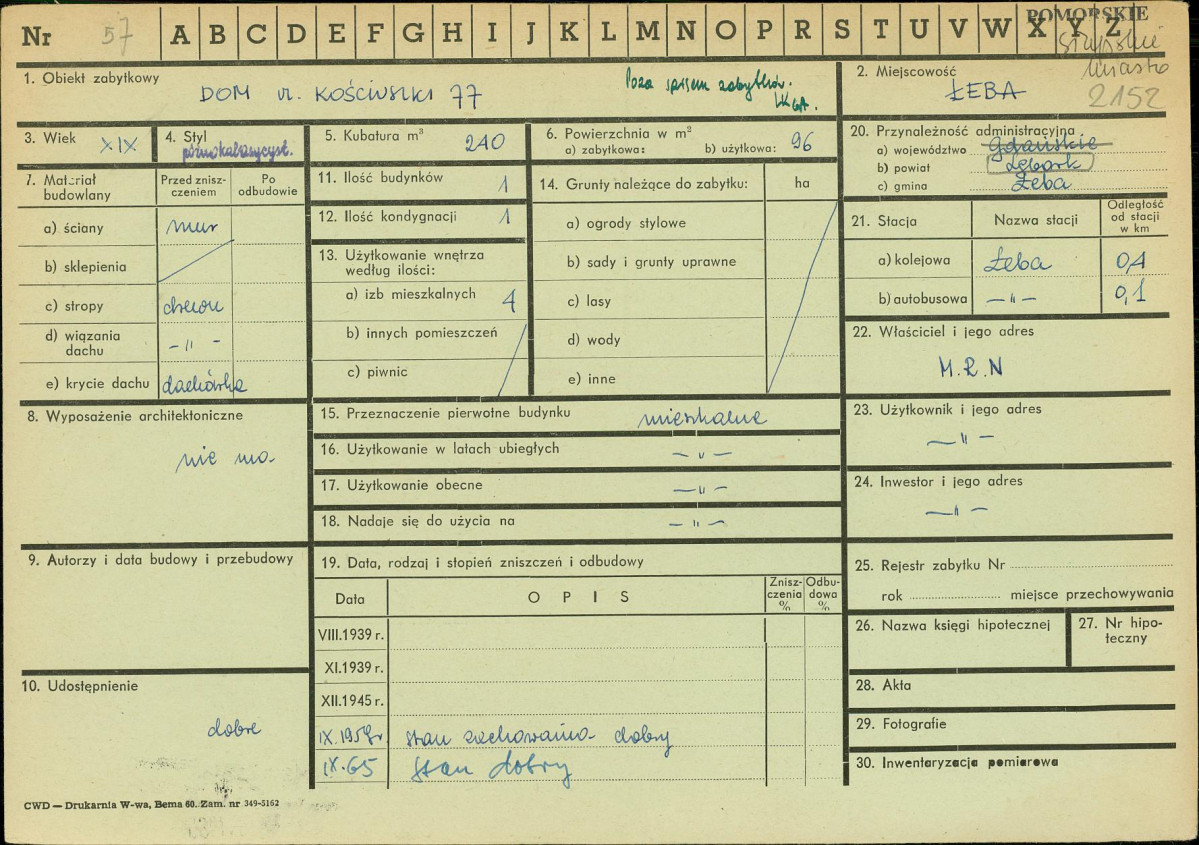 Nr 57 A B C D E F G H I J K L M N O P R S T U V W X Y Z POMORSKIE
słupskie
miasto
2152
1. Obiekt zabytkowy
DOM ul. KOŚCIUSZKI 77
Poza spisem zabytków.
2. Miejscowość
ŁEBA
3. Wiek XIX
4. Styl
późnoklasycyst.
5. Kubatura m³ 240
6. Powierzchnia w m²
a) zabytkowa: b) użytkowa: 96
7. Materiał budowlany
Przed zniszczeniem
Po odbudowie
a) ściany mur
b) sklepienia
c) stropy drewn
d) wiązania dachu – " –
e) krycie dachu dachówka
8. Wyposażenie architektoniczne
nie ma
9. Autorzy i data budowy i przebudowy
10. Udostępnienie
dobre
11. Ilość budynków 1
12. Ilość kondygnacji 1
13. Użytkowanie wnętrza
według ilości:
a) izb mieszkalnych 4
b) innych pomieszczeń
c) piwnic
14. Grunty należące do zabytku: ha
a) ogrody stylowe
b) sady i grunty uprawne
c) lasy
d) wody
e) inne
15. Przeznaczenie pierwotne budynku mieszkalne
16. Użytkowanie w latach ubiegłych – " –
17. Użytkowanie obecne – " –
18. Nadaje się do użycia na – " –
19. Data, rodzaj i stopień zniszczeń i odbudowy
Data OPIS Zniszczenia % Odbudowa %
VIII.1939 r.
XI.1939 r.
XII.1945 r.
IX.1959r stan zachowania dobry
IX.65 stan dobry
20. Przynależność administracyjna
a) województwo Gdańskie
b) powiat Lębork
c) gmina Łeba
21. Stacja Nazwa stacji Odległość od stacji w km
a) kolejowa Łeba 0,4
b) autobusowa – " – 0,1
22. Właściciel i jego adres
M.R.N
23. Użytkownik i jego adres
– " –
24. Inwestor i jego adres
– " –
25. Rejestr zabytku Nr
rok miejsce przechowywania
26. Nazwa księgi hipotecznej
27. Nr hipoteczny
28. Akta
29. Fotografie
30. Inwentaryzacja pomiarowa
CWD — Drukarnia W-wa, Bema 60. Zam. nr 349-5162